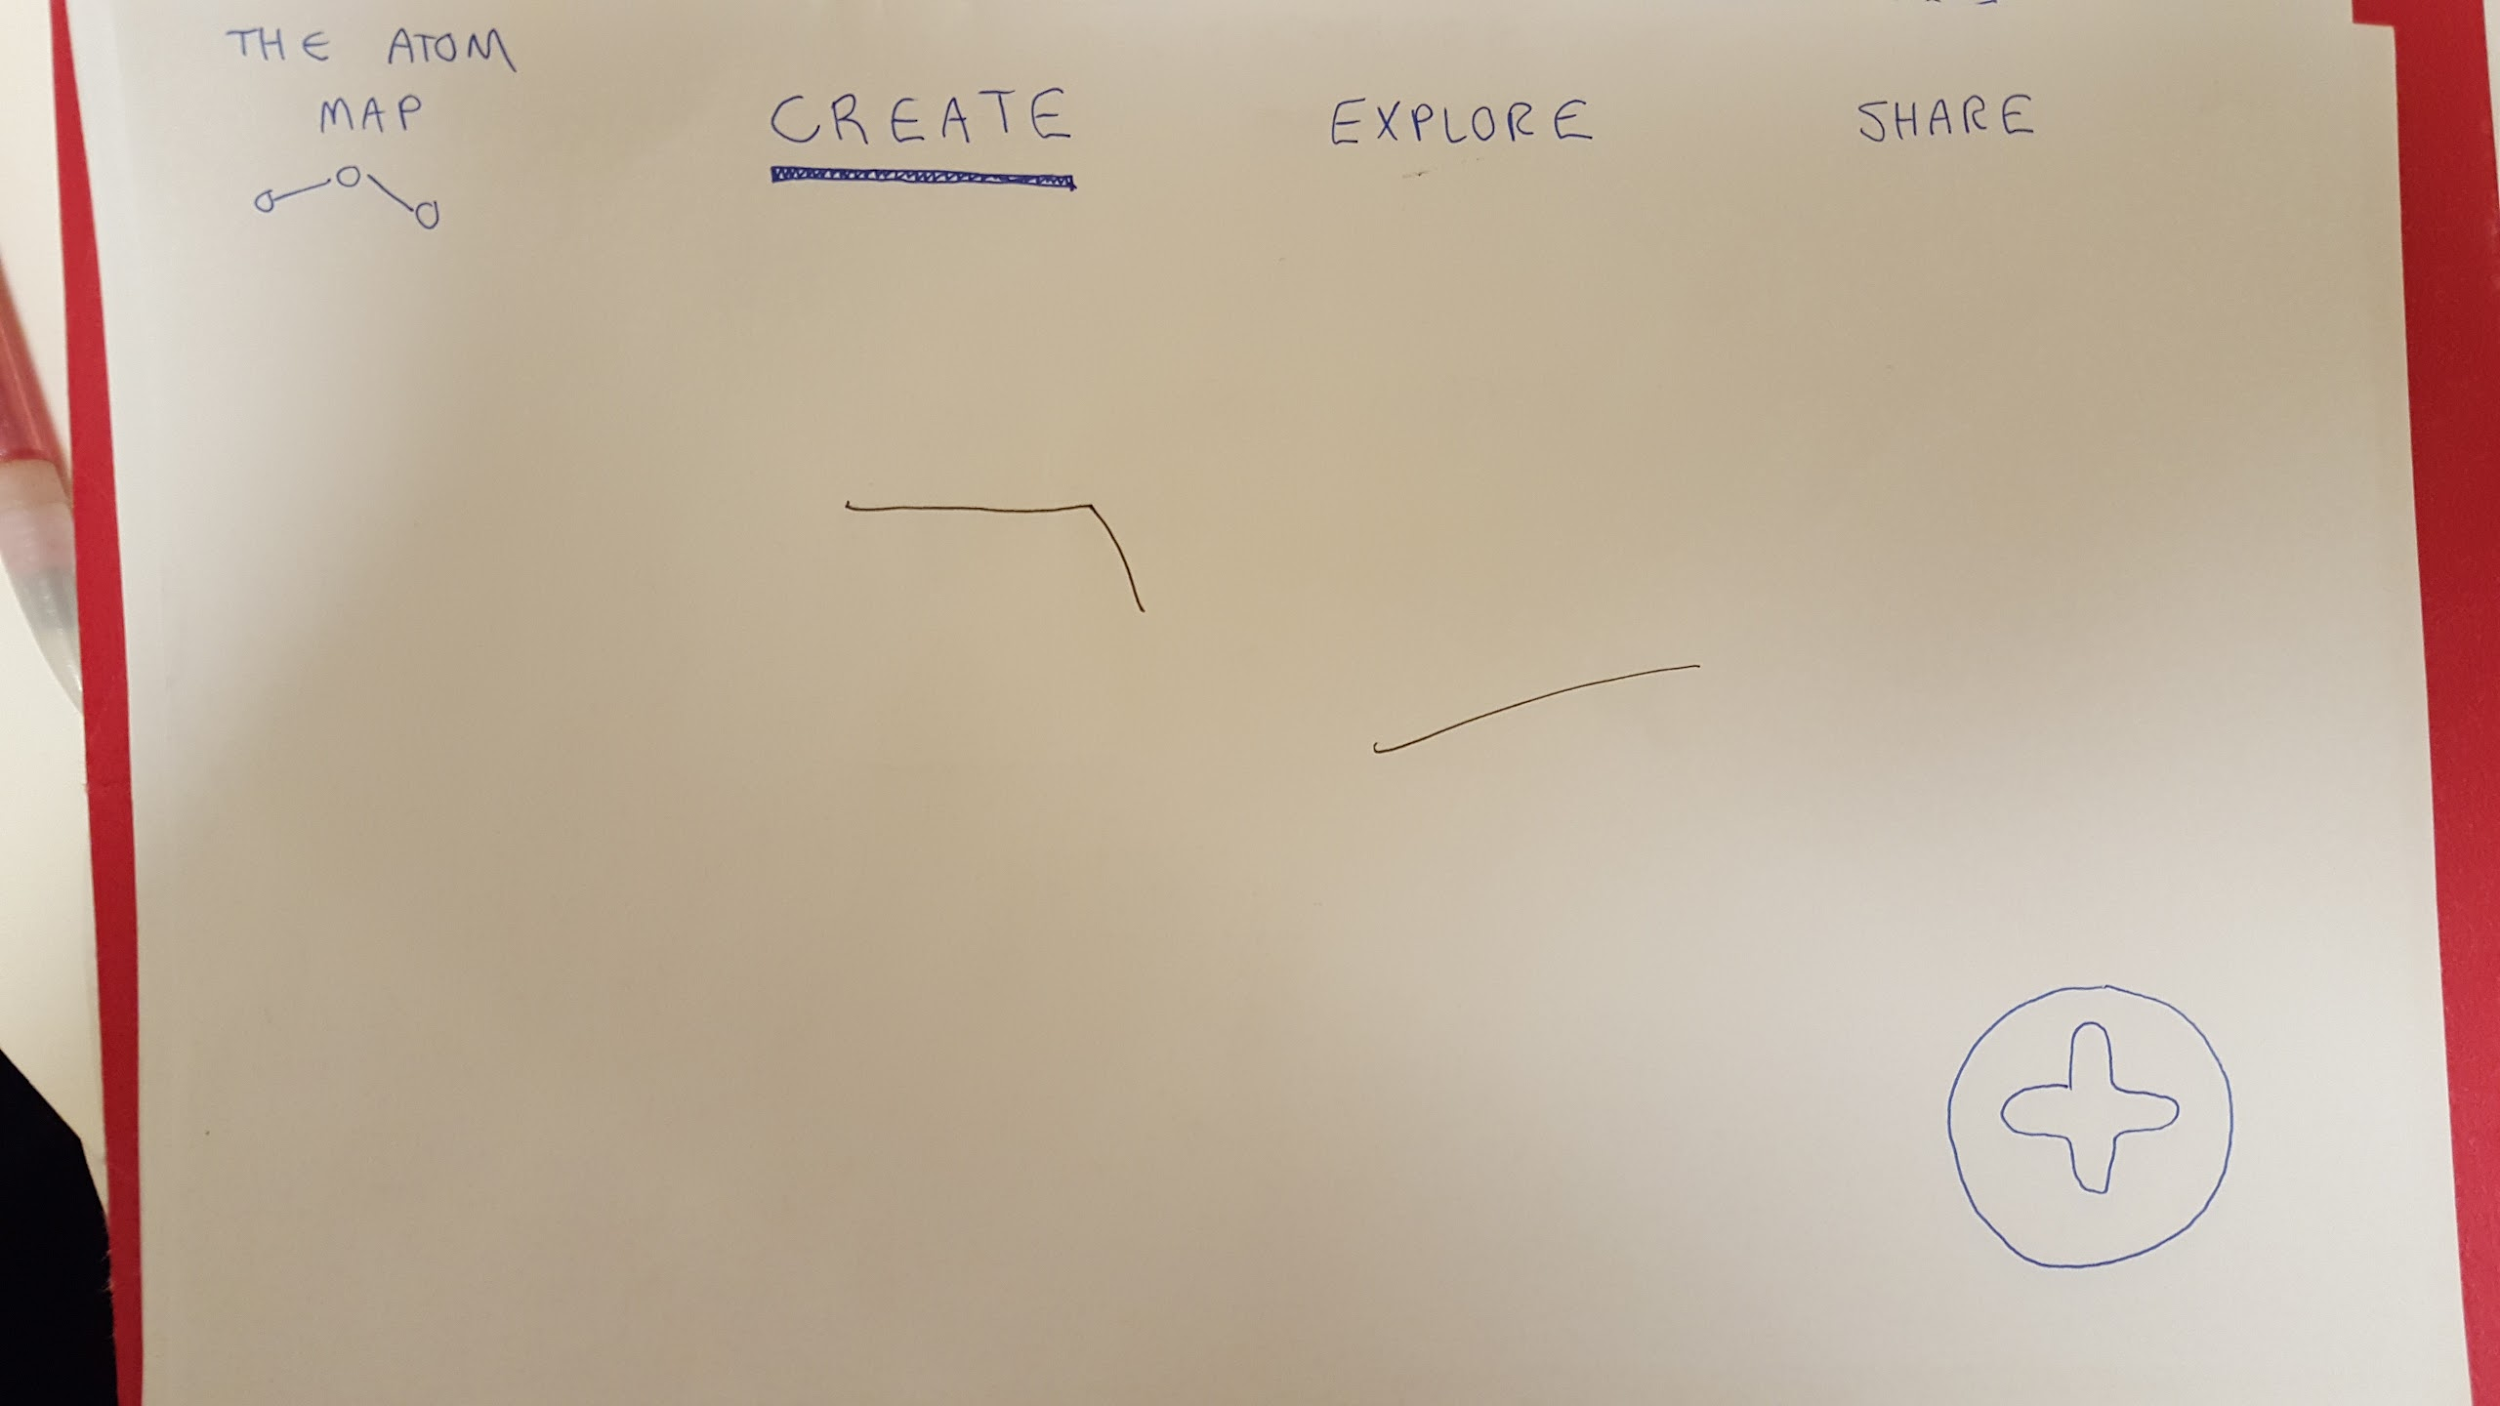 THE ATOM
MAP
CREATE
EXPLORE
SHARE